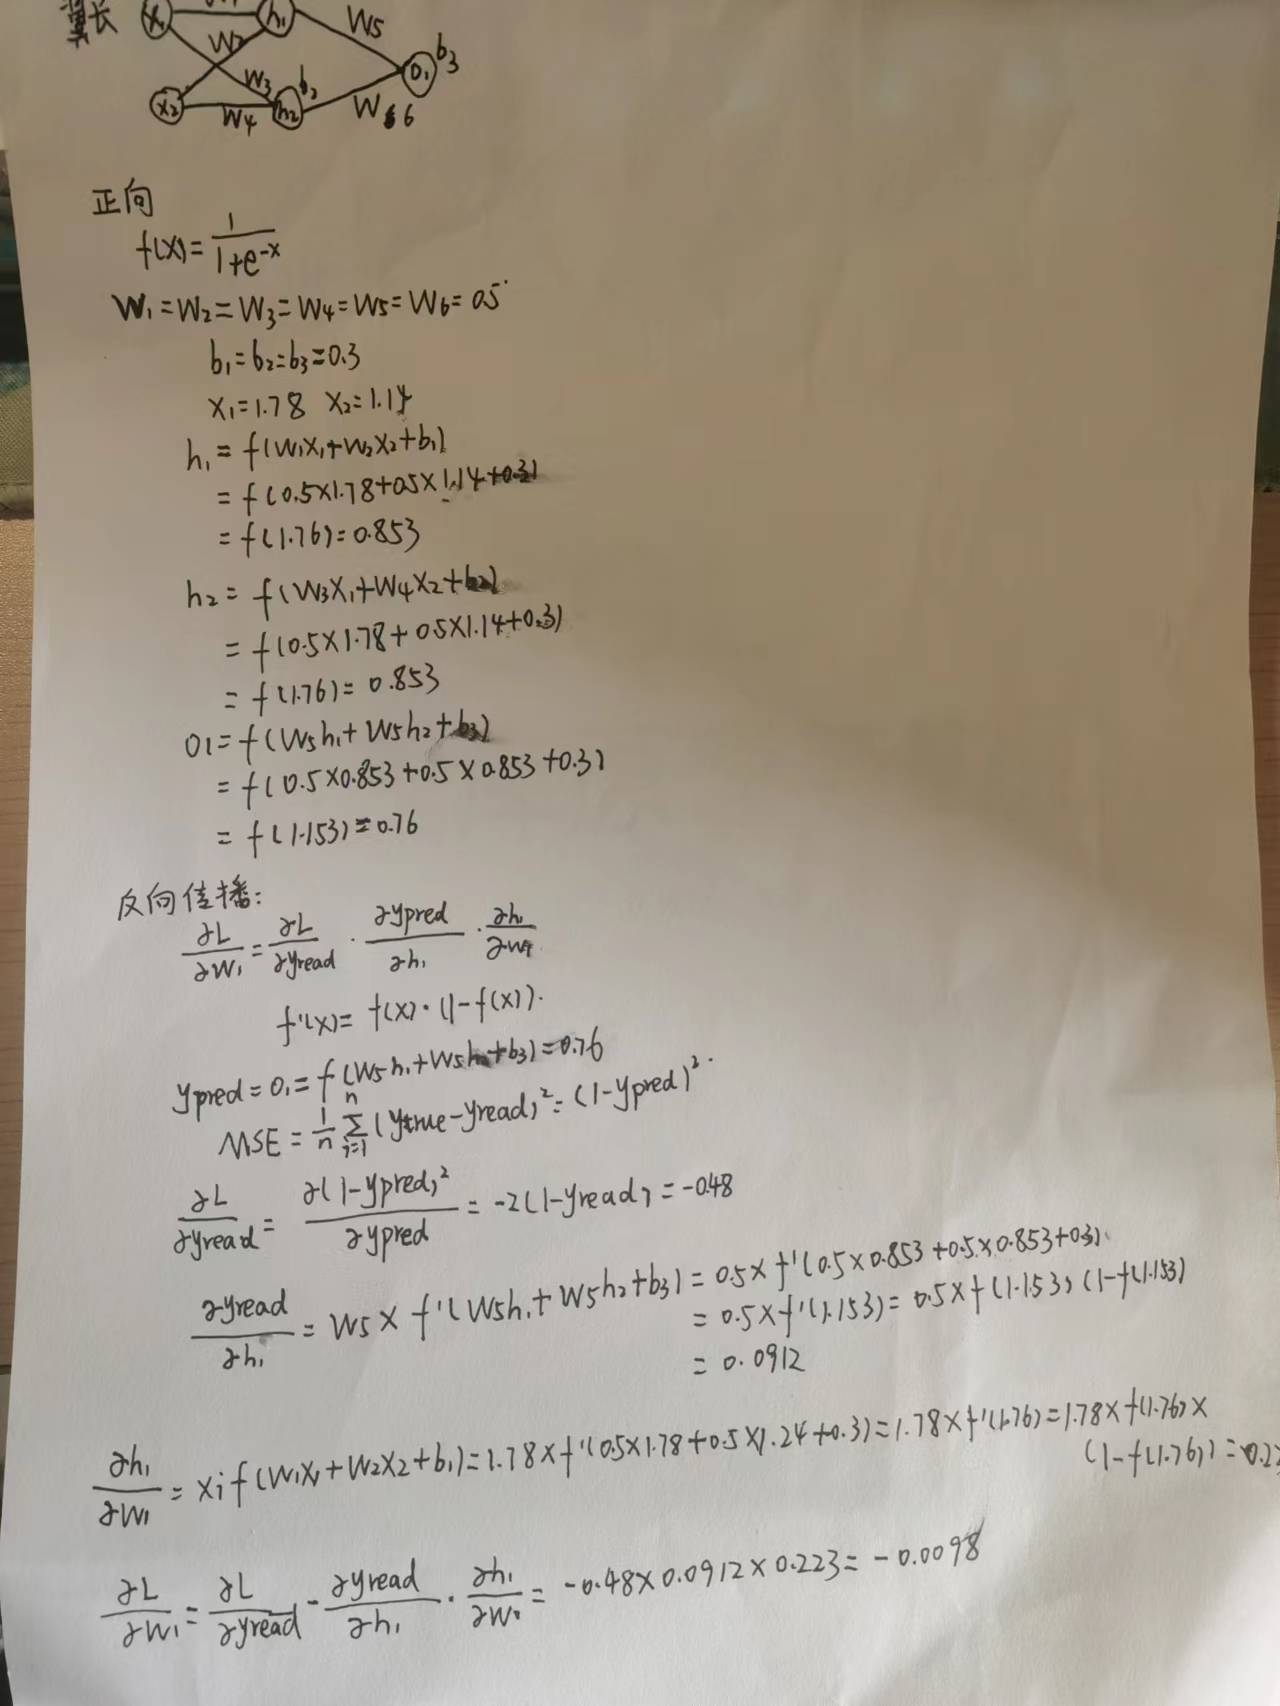 翼长 x₁ h₁ W5
W2 b3
W3 b₂ O₁
x₂ W4 h₂ W6 6
正向
f(x)=1/(1+e^-x)
W₁=W₂=W₃=W₄=W5=W6=0.5
b₁=b₂=b₃=0.3
X₁=1.78 X₂=1.14
h₁=f(W₁X₁+W₂X₂+b₁)
=f(0.5×1.78+0.5×1.14+0.3)
=f(1.76)=0.853
h₂=f(W3X₁+W4X2+b2)
=f(0.5×1.78+0.5×1.14+0.3)
=f(1.76)=0.853
O1=f(W5h₁+W5h₂+b3)
=f(0.5×0.853+0.5×0.853+0.3)
=f(1.153)=0.76
反向传播:
∂L/∂W₁=∂L/∂yread·∂ypred/∂h₁·∂h₁/∂W₁
f'(x)=f(x)·(1-f(x)).
ypred=O₁=f(W5h₁+W5h₂+b3)=0.76
MSE=1/n Σ(i=1, n)(ytrue-yread)²=(1-ypred)².
∂L/∂yread=∂(1-ypred)²/∂ypred=-2(1-yread)=-0.48
∂yread/∂h₁=W5×f'(W5h₁+W5h₂+b3)=0.5×f'(0.5×0.853+0.5×0.853+0.3)
=0.5×f'(1.153)=0.5×f(1.153)(1-f(1.153)
=0.0912
∂h₁/∂W₁=xif(W₁X₁+W₂X₂+b₁)=1.78×f'(0.5×1.78+0.5×1.24+0.3)=1.78×f'(1.76)=1.78×f(1.76)×
(1-f(1.76))=0.22
∂L/∂W₁=∂L/∂yread-∂yread/∂h₁·∂h₁/∂W₁=-0.48×0.0912×0.223=-0.0098